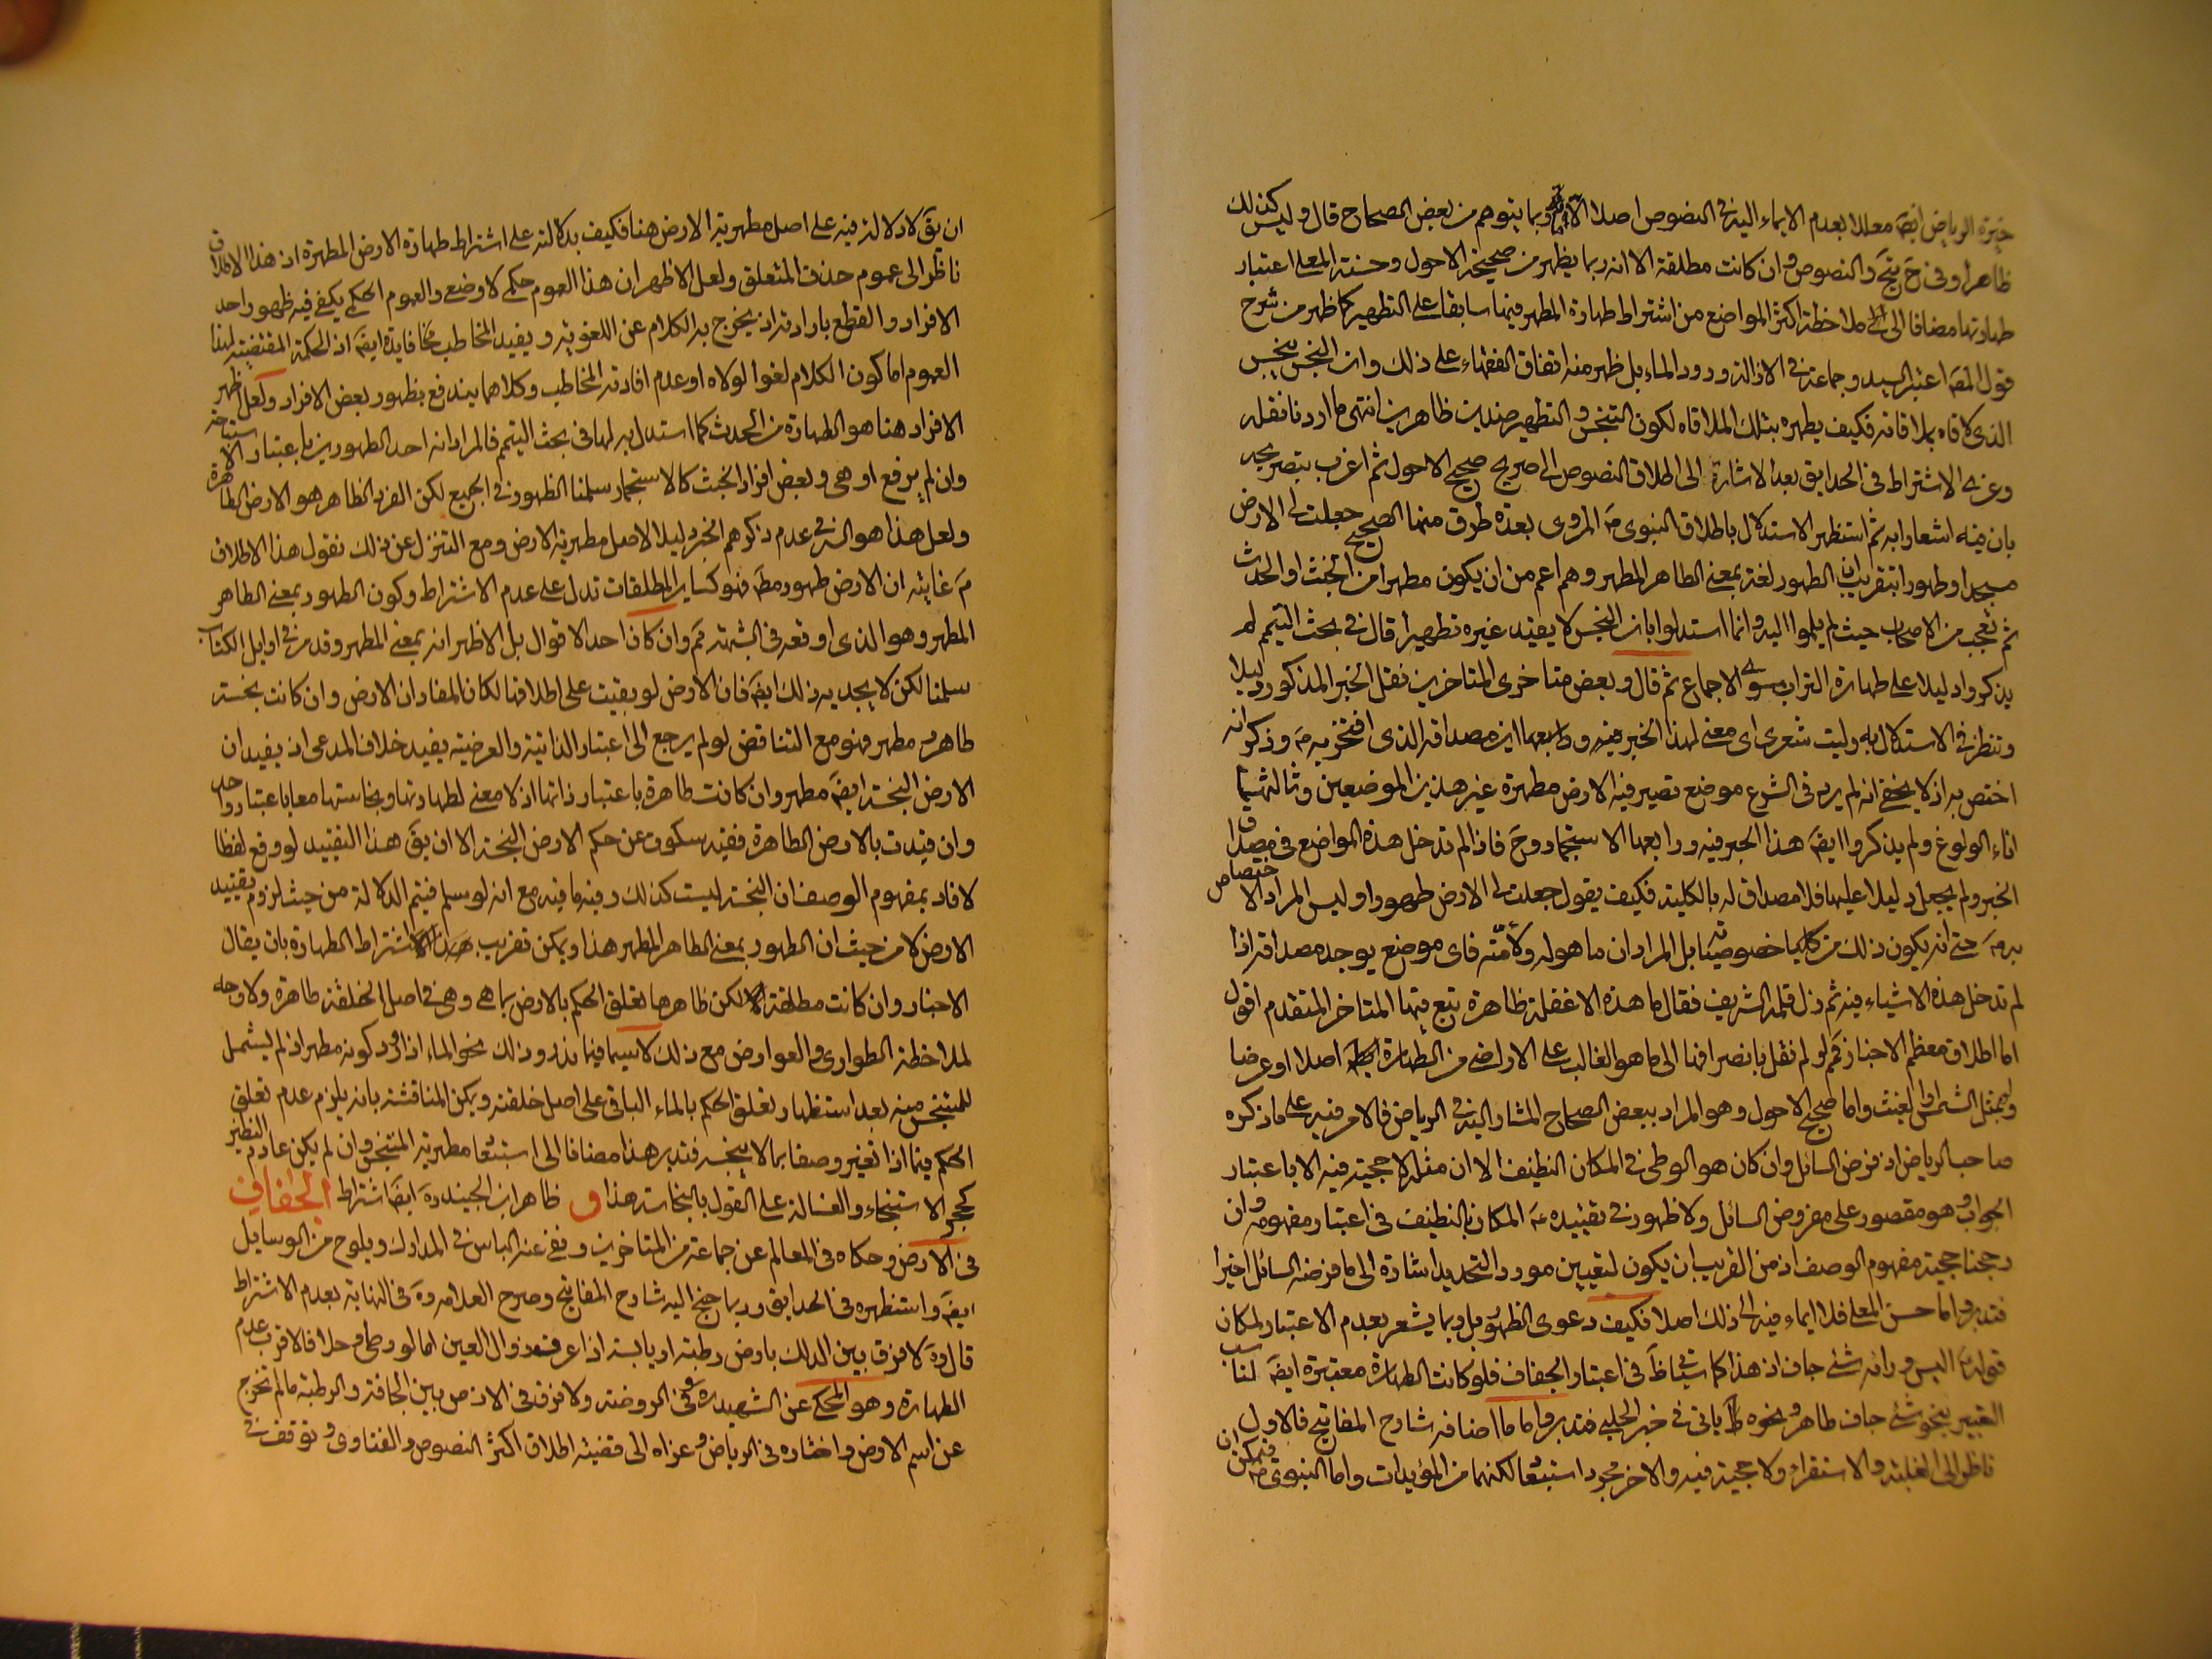 خيرة الرياض ايضَ معللا بعدم الايماء اليه في النصوص اصلا الا وبما يتوهم من بعض الصحاح قال وليس كذلك
ظاهرا وفي حَ يتجَ والنصوص وان كانت مطلقة الا انه ربما يظهر من صحيحة الاحول وحسنة المعلى اعتبار
طهارتها مضافا الى ملاحظة اكثر المواضع من اشتراط طهارة المطهر فيما سابقا على التطهير كما ظهر من شرح
قول المصَ اعتبر السيد وجماعة في الازالة ورود الماء بل ظهر منه اتفاق الفقهاء على ذلك وان النجس ينجس
الذى لاقاه بملاقاته فكيف يطهره بتلك الملاقاه لكون التنجس والتطهير ضدين ظاهرين انتهى ما اردنا نقله
وعزى الاشتراط في الحدايق بعد الاشارة الى اطلاق النصوص الى صريح صحيح الاحول ثم اغرب بتصريحه
بان فيه اشعارا به ثم استظهر الاستدلال باطلاق النبوى صَ المروى بعدة طرق منها الصحيح جعلت لى الارض
مسجدا وطهورا بتقريب ان الطهور لغة بمعنى الطاهر المطهر وهم اعم من ان يكون مطهرا من الخبث او الحدث
ثم تعجب من الاصحاب حيث لم يلموا اليه وانما استدلوا بان النجس لا يفيد غيره تطهيرا قال في بحث التيمم لم
يذكروا دليلا على طهارة التراب سوى الاجماع ثم قال وبعض متاخرى المتاخرين نقل الخبر المذكور دليلا
وتنظر في الاستدلال به وليت شعرى اى معنى لهذا الخبر واين مصداقه الذى افتخر به صَ وذكر انه
اختص به اذ لا يخفى انه لم يرد في الشرع موضع تصير فيه الارض مطهرة غير هذين الموضعين وثالثهما
اناء الولوغ ولم يذكروا ايضَ هذا الخبر فيه ورابعها الاستجمار وحَ فاذا لم تدخل هذه المواضع في مصداق
الخبر ولم يجعل دليلا عليها فلا مصداق له بالكلية فكيف يقول جعلت لى الارض طهورا وليس المراد الاختصاص
به صَ حتى انه يكون ذلك من خصوصياته بل المراد ان ما هو له ولامّته فاى موضع يوجد مصداقه اذا
لم تدخل هذه الاشياء فيه ثم ذل قلمه الشريف فقال ما هذه الا غفلة ظاهرة تبع فيها المتاخر المتقدم اقول
اما اطلاق معظم الاخبار فمَ لو لم نقل بانصرافها الى ما هو الغالب على الاراضى من الطهارة اصلا او عرضا
ولو بمثل الشمس او الغيث واما صحيح الاحول وهو المراد ببعض الصحاح المشار اليه في الرياض فالامر فيه على ما ذكره
صاحب الرياض اذ فرض السائل وان كان هو الوطى في المكان النظيف الا ان مثله لا حجية فيه الا باعتبار
الجواب وهو مقصور على مفروض السائل ولا ظهور في تقييده عَ المكان بالنظيف في اعتبار مفهومه وان
رجحنا حجية مفهوم الوصف اذ من القريب ان يكون لتعيين مورد التحديد اشارة الى ما فرضه السائل اخيرا
فتدبر واما حسن المعلى فلا ايماء فيه الى ذلك اصلا فكيف دعوى الظهور بل وبما يشعر بعدم الاعتبار لمكان
قوله عَ اليس ورائه شئ جاف اذ هذا كما سيأتى في اعتبار الجفاف فلو كانت الطهارة معتبرة ايضَ لناسب
التعبير بنحو شئ جاف طاهر ونحوه ياتى في خبر الحلبى فتدبر واما ما اضافه شارح المفاتيح فالاول
ناظر الى الغلبة والاستقراء ولا حجية فيه والاخر مجرد استبعاد لكنهما من المؤيدات واما النبوى صَ فيمكن ان
ان يقَ لا دلالة فيه على اصل مطهرية الارض هنا فكيف بدلالته على اشتراط طهارة الارض المطهرة اذ هذا الاطلاق
ناظر الى عموم حذف المتعلق ولعل الاظهر ان هذا العموم حكمى لا وضعى والعموم الحكمى يكفى فيه ظهور واحد
الافراد والقطع بارادته اذ يخرج به الكلام عن اللغوية ويفيد المخاطب فايدة ايضَ اذ الحكمة المقتضية لهذا
العموم اما كون الكلام لغوا لولاه او عدم افادته المخاطب وكلاهما يندفع بظهور بعض الافراد ولعل اظهر
الافراد هنا هو الطهارة من الحدث كما استدل به لها في بحث التيمم فالمراد انه احد الطهورين باعتبار الاستباحة
وان لم يرفع او هى وبعض افراد الخبث كالاستجمار سلمنا الظهور في الجميع لكن الفرد الظاهر هو الارض الطاهرة
ولعل هذا هو السر في عدم ذكرهم الخبر دليلا لاصل مطهرية الارض ومع التنزل عن ذلك نقول هذا الاطلاق
مَ غايته ان الارض طهور مطَ فهو كساير المطلقات تدل على عدم الاشتراط وكون الطهور بمعنى الطاهر
المطهر وهو الذى اوقعه في الشبهة ممَ وان كان احد الاقوال بل الاظهر انه بمعنى المطهر وقد مر في اوايل الكتاب
سلمنا لكن لا يجديه ذلك ايضَ فان الارض لو بقيت على اطلاقها لكان المفاد ان الارض وان كانت نجسة
طاهرة مطهر فهو مع التناقض لو لم يرجع الى اعتبار الذاتية والعرضية يفيد خلاف المدعى اذ يفيد ان
الارض النجسة ايضَ مطهر وان كانت طاهرة باعتبار ذاتها اذ لا معنى لطهارتها ونجاستها معا باعتبار واحد
وان قيدت بالارض الطاهرة ففيه سكوت عن حكم الارض النجسة الا ان يقَ هذا التقييد لو وقع لفظا
لافاد بمفهوم الوصف ان النجسة ليست كذلك وفيه ما فيه مع انه لو سلم فيتم الدلالة من حيث لزوم تقييد
الارض لا من حيث ان الطهور بمعنى الطاهر المطهر هذا ويمكن تقريب اشتراط الطهارة بان يقال
الاخبار وان كانت مطلقة لكن ظاهرها تعلق الحكم بالارض بما هى وهى في اصل الخلقة طاهرة ولا وجه
لملاحظة الطوارى والعوارض مع ذلك لا سيما فيما ندر وذلك نحو الماء اذا ورد كونه مطهر اذ لم يشمل
للمتنجس منه بعد استظهار تعلق الحكم بالماء الباقى على اصل خلقته ويمكن المناقشة بانه يلزم عدم تعلق
الحكم فيما اذا تغير وصفا بما لا ينجسه فتدبر هذا مضافا الى استبعاد مطهرية المتنجس وان لم يكن عادم النظير
كحجر الاستنجاء والغسالة على القول بالنجاسة هذا و ظاهر ابن الجنيد رهَ ايضَ اشتراط الجفاف
في الارض وحكاه في المعالم عن جماعة من المتاخرين ونفى عنه الباس في المدارك ويلوح من الوسايل
ايضَ واستظهره في الحدايق وربما جنح اليه شارح المفاتيح وصرح العلامه رهَ في النهاية بعدم الاشتراط
قال رهَ لا فرق بين الدلك بارض رطبة او يابسة اذا عرفت زوال العين اما لو وطى وحلا فالاقرب عدم
الطهارة وهو المحكى عن الشهيد ره في الروضة ولا فرق في الارض بين الجافة والرطبة ما لم تخرج
عن اسم الارض واختاره في الرياض وعزاه الى قضية اطلاق اكثر النصوص والفتاوى وتوقف في